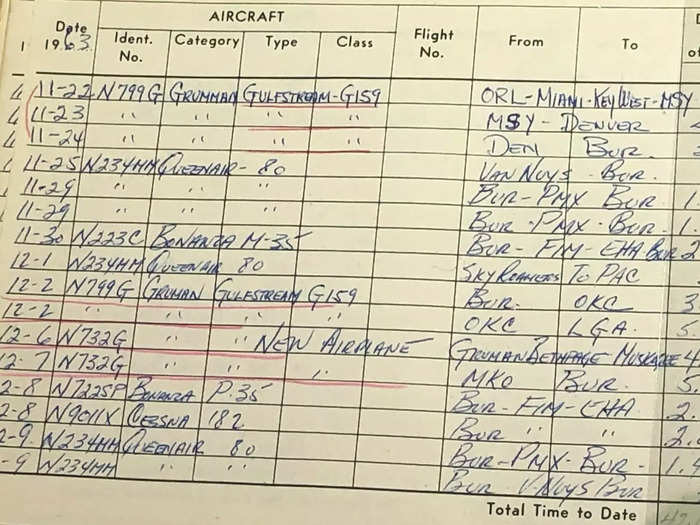 AIRCRAFT
Date 1963. Ident. No. Category Type Class Flight No. From To
11-22 N799G GRUMMAN GULFSTREAM-G159 ORL-MIAMI-KEY WEST-MSY
11-23 " " " " MSY - DENVER
11-24 " " " " DEN BUR.
11-25 N234HM QUEENAIR - 80 VAN NUYS - BUR.
11-29 " " " BUR-PMX BUR 1.
11-29 " " " BUR-PMX-BUR- 1.
11-30 N223C BONANZA M-35 BUR-FIM-EHA BUR 2
12-1 N234HM QUEENAIR 80 SKY ROAMERS TO PAC
12-2 N799G GRUMAN GULFSTREAM G159 BUR. OKC 3
12-2 " " " " OKC LGA. 5.
12-6 N732G NEW AIRPLANE GRUMAN BETHPAGE MUSKOGEE 4
12-7 N732G " " " MKO BUR. 5.
12-8 N7225P BONANZA P.35 BUR-FIM-EHA. 2.
12-8 N9011X CESSNA 182 BUR " " 2.
12-9. N234HM QUEENAIR 80 BUR-PMX-BUR- 1.
-9 N234HM " " " BUR V-NUYS BUR
Total Time to Date